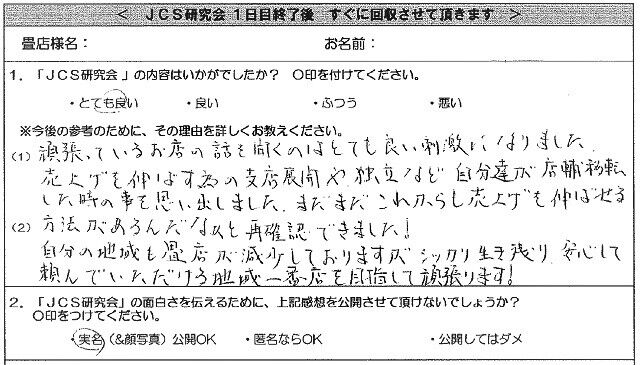 ＜ JCS研究会 1日目終了後　すぐに回収させて頂きます ＞
畳店様名：　お名前：
1．「JCS研究会」の内容はいかがでしたか？　〇印を付けてください。
・とても良い　・良い　・ふつう　・悪い
※今後の参考のために、その理由を詳しくお教えください。
(1) 頑張っているお店の話を聞くのはとても良い刺激になりました
売上げを伸ばす為の支店展開や独立など 自分達が店舗移転
した時の事を思い出しました、まだまだこれからも売上げを伸ばせる
(2) 方法があるんだなと再確認できました！
自分の地域も畳店が減少しておりますがシッカリ生き残り、安心して
頼んでいただける地域一番店を目指して頑張ります！
2．「JCS研究会」の面白さを伝えるために、上記感想を公開させて頂けないでしょうか？
〇印をつけてください。
・実名（&顔写真）公開OK　・匿名ならOK　・公開してはダメ